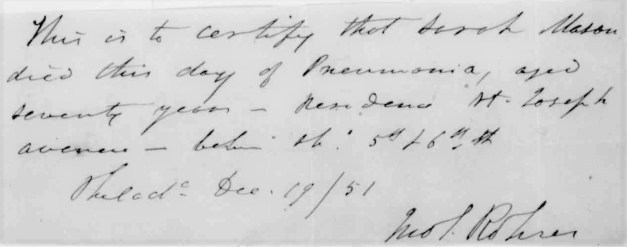 This is to certify that Sarah Mason
died this day of Pneumonia, aged
seventy years – Residence St. Joseph
avenue – 5th & 6th St
Philada Dec. 19/51
Rohrer